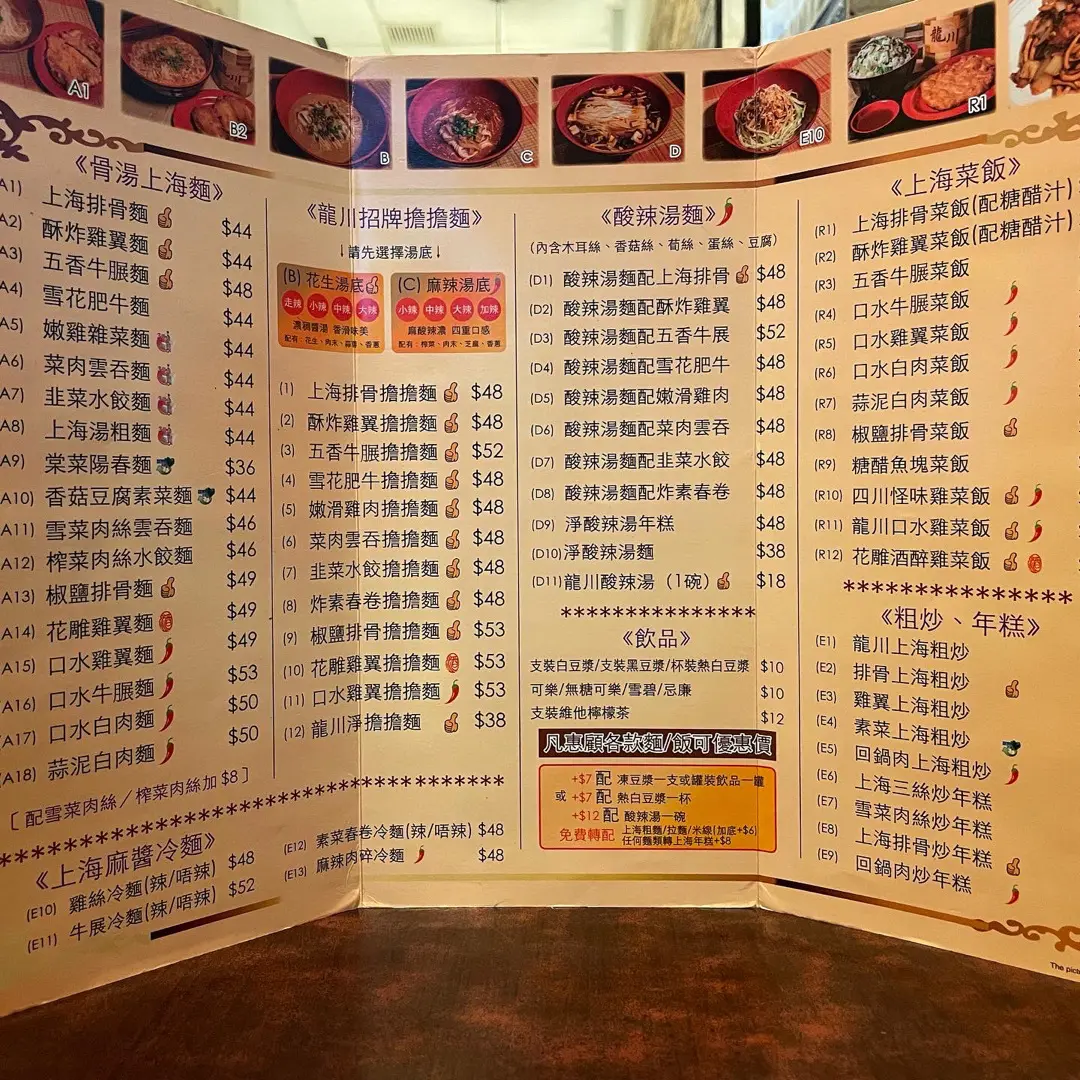 A1
B2
B
C
D
E10
龍川
R1
《骨湯上海麵》
(A1) 上海排骨麵 $44
(A2) 酥炸雞翼麵 $44
(A3) 五香牛𦟌麵 $48
(A4) 雪花肥牛麵 $44
(A5) 嫩雞雜菜麵 $44
(A6) 菜肉雲吞麵 $44
(A7) 韭菜水餃麵 $44
(A8) 上海湯粗麵 $44
(A9) 棠菜陽春麵 $36
(A10) 香菇豆腐素菜麵 $44
(A11) 雪菜肉絲雲吞麵 $46
(A12) 榨菜肉絲水餃麵 $46
(A13) 椒鹽排骨麵 $49
(A14) 花雕雞翼麵 $49
(A15) 口水雞翼麵 $49
(A16) 口水牛𦟌麵 $53
(A17) 口水白肉麵 $50
(A18) 蒜泥白肉麵 $50
[ 配雪菜肉絲／榨菜肉絲加 $8 ]
《上海麻醬冷麵》
(E10) 雞絲冷麵(辣/唔辣) $48
(E11) 牛展冷麵(辣/唔辣) $52
(E12) 素菜春卷冷麵(辣/唔辣) $48
(E13) 麻辣肉碎冷麵 $48
《龍川招牌擔擔麵》
↓請先選擇湯底↓
(B) 花生湯底
走辣 小辣 中辣 大辣
濃稠醬湯 香滑味美
配有：花生、肉末、蒜蓉、香蔥
(C) 麻辣湯底
小辣 中辣 大辣 加辣
麻酸辣濃 四重口感
配有：榨菜、肉末、芝麻、香蔥
(1) 上海排骨擔擔麵 $48
(2) 酥炸雞翼擔擔麵 $48
(3) 五香牛𦟌擔擔麵 $52
(4) 雪花肥牛擔擔麵 $48
(5) 嫩滑雞肉擔擔麵 $48
(6) 菜肉雲吞擔擔麵 $48
(7) 韭菜水餃擔擔麵 $48
(8) 炸素春卷擔擔麵 $48
(9) 椒鹽排骨擔擔麵 $53
(10) 花雕雞翼擔擔麵 $53
(11) 口水雞翼擔擔麵 $53
(12) 龍川淨擔擔麵 $38
《酸辣湯麵》
(內含木耳絲、香菇絲、荀絲、蛋絲、豆腐)
(D1) 酸辣湯麵配上海排骨 $48
(D2) 酸辣湯麵配酥炸雞翼 $48
(D3) 酸辣湯麵配五香牛展 $52
(D4) 酸辣湯麵配雪花肥牛 $48
(D5) 酸辣湯麵配嫩滑雞肉 $48
(D6) 酸辣湯麵配菜肉雲吞 $48
(D7) 酸辣湯麵配韭菜水餃 $48
(D8) 酸辣湯麵配炸素春卷 $48
(D9) 淨酸辣湯年糕 $48
(D10) 淨酸辣湯麵 $38
(D11) 龍川酸辣湯（1碗） $18
***************
《飲品》
支裝白豆漿/支裝黑豆漿/杯裝熱白豆漿 $10
可樂/無糖可樂/雪碧/忌廉 $10
支裝維他檸檬茶 $12
凡惠顧各款麵/飯可優惠價
+$7 配 凍豆漿一支或罐裝飲品一罐
或 +$7 配 熱白豆漿一杯
+$12 配 酸辣湯一碗
免費轉配 上海粗麵/拉麵/米線(加底+$6)
任何麵類轉上海年糕+$8
《上海菜飯》
(R1) 上海排骨菜飯(配糖醋汁)
(R2) 酥炸雞翼菜飯(配糖醋汁)
(R3) 五香牛𦟌菜飯
(R4) 口水牛𦟌菜飯
(R5) 口水雞翼菜飯
(R6) 口水白肉菜飯
(R7) 蒜泥白肉菜飯
(R8) 椒鹽排骨菜飯
(R9) 糖醋魚塊菜飯
(R10) 四川怪味雞菜飯
(R11) 龍川口水雞菜飯
(R12) 花雕酒醉雞菜飯
《粗炒、年糕》
(E1) 龍川上海粗炒
(E2) 排骨上海粗炒
(E3) 雞翼上海粗炒
(E4) 素菜上海粗炒
(E5) 回鍋肉上海粗炒
(E6) 上海三絲炒年糕
(E7) 雪菜肉絲炒年糕
(E8) 上海排骨炒年糕
(E9) 回鍋肉炒年糕
The